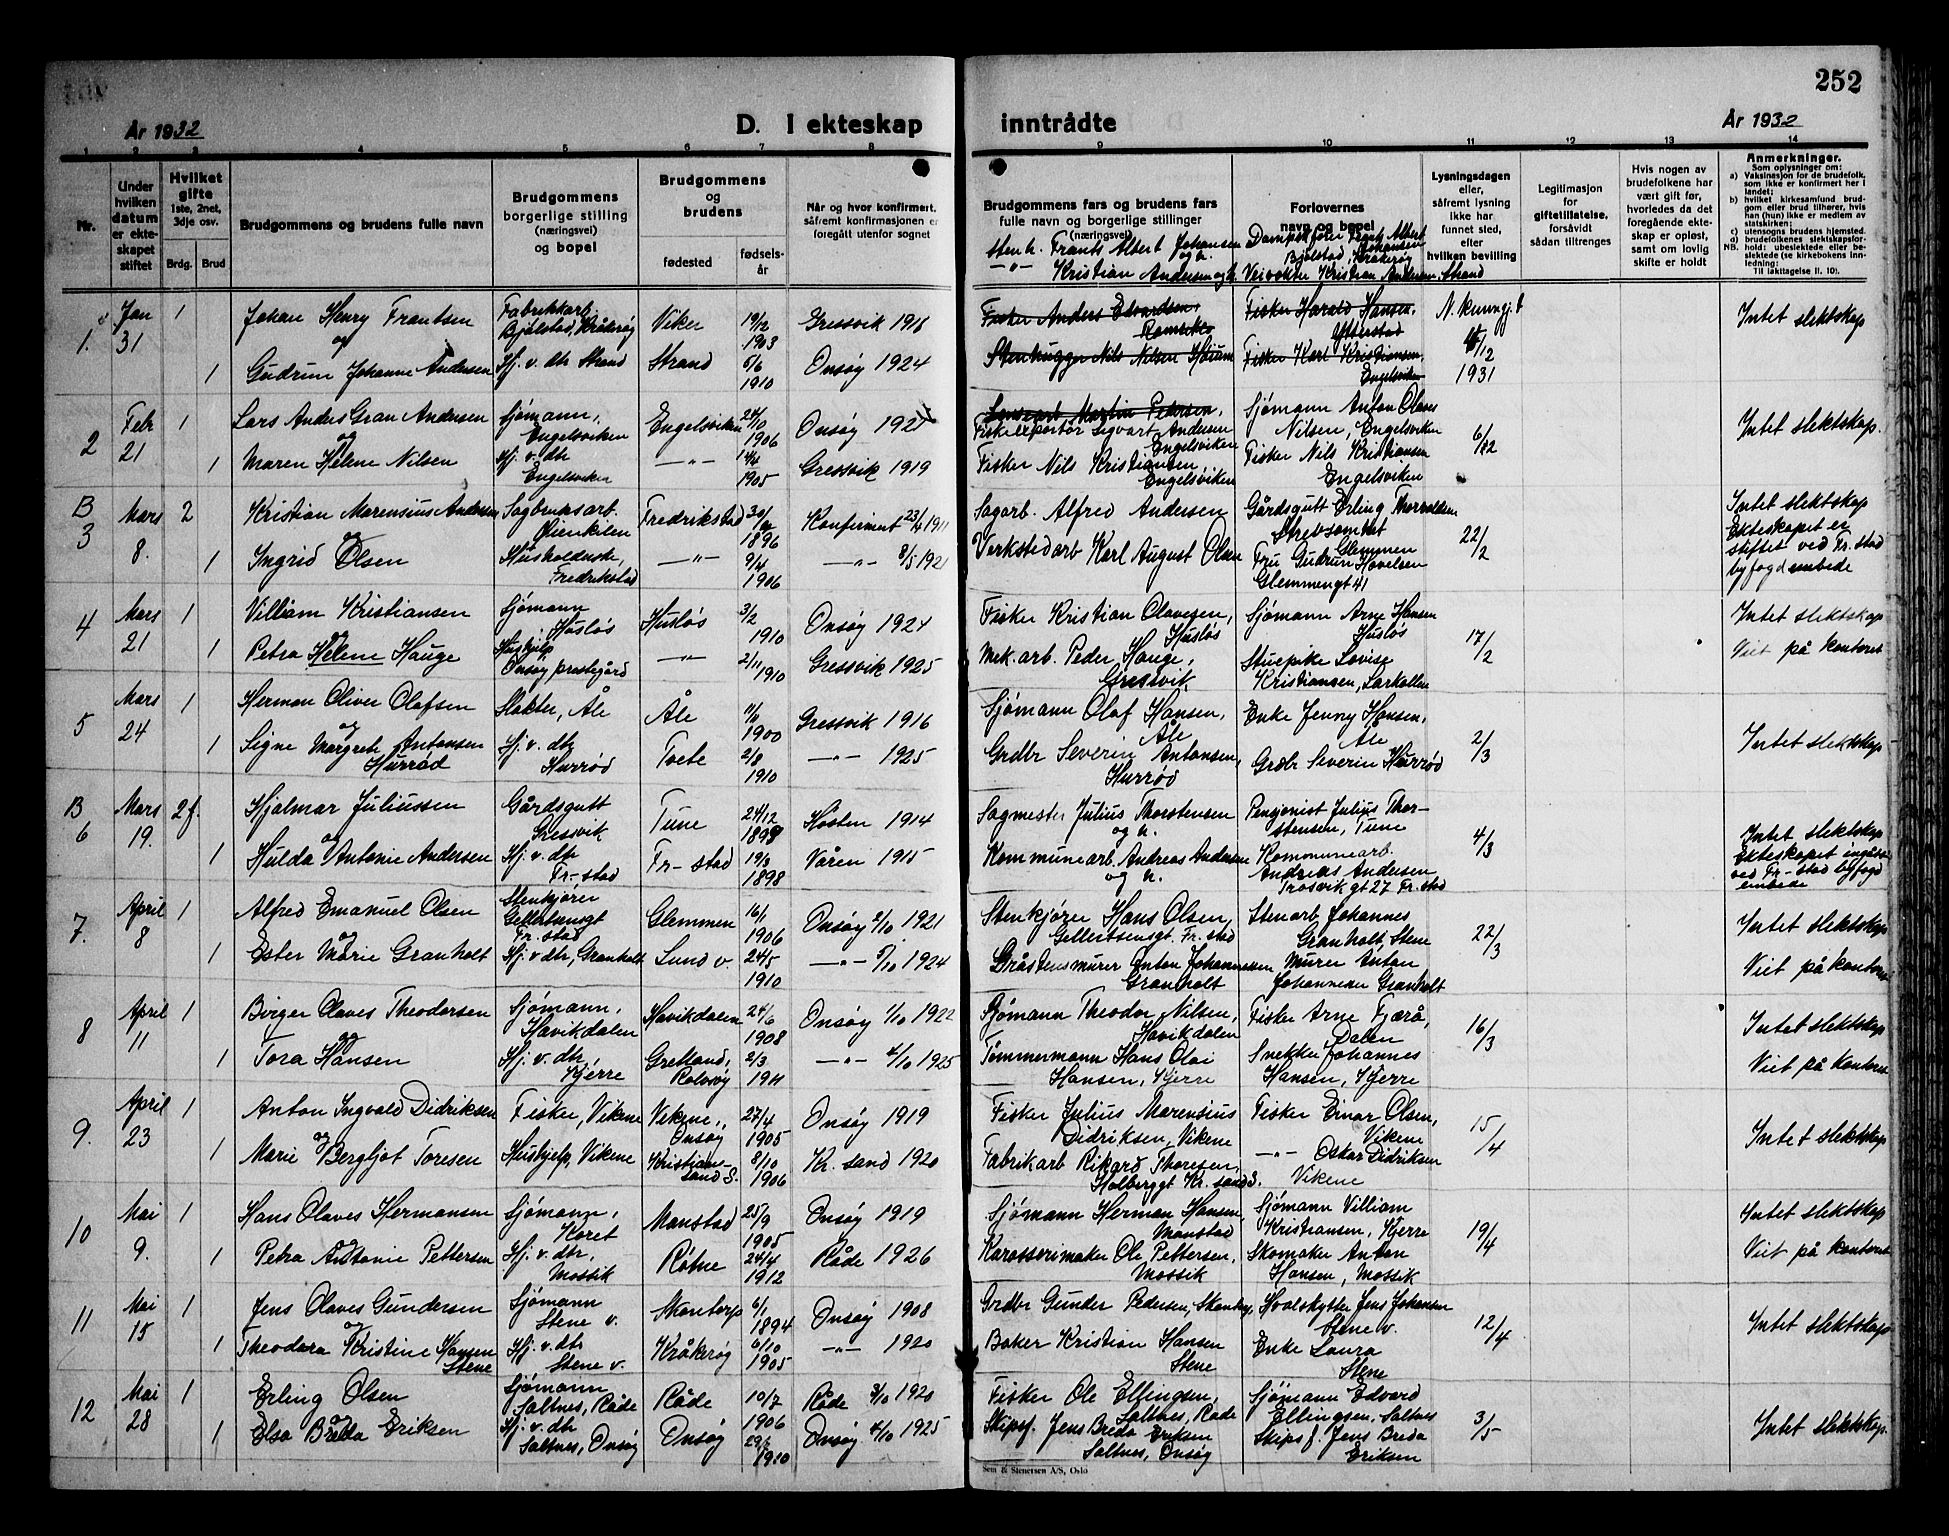 252
År 1932
D. I ekteskap inntrådte
År 1932
1 2 3 4 5 6 7 8 9 10 11 12 13 14
Nr.
Under hvilken datum er ekteskapet stiftet
Hvilket gifte 1ste, 2net, 3dje osv.
Brdg. Brud
Brudgommens og brudens fulle navn
Brudgommens borgerlige stilling (næringsvei) og bopel
Brudgommens og brudens
fødested
fødselsår
Når og hvor konfirmert, såfremt konfirmasjonen er foregått utenfor sognet
Brudgommens fars og brudens fars fulle navn og borgerlige stillinger (næringsvei)
Forlovernes navn og bopel
Lysningsdagen eller, såfremt lysning ikke har funnet sted, efter hvilken bevilling
Legitimasjon for giftetillatelse, forsåvidt sådan tiltrenges
Hvis nogen av brudefolkene har vært gift før, hvorledes da det foregående ekteskap er opløst, samt om lovlig skifte er holdt
Anmerkninger.
Som oplysninger om:
a) Vaksinasjon for de brudefolk, som ikke er konfirmert her i landet;
b) hvilket kirkesamfund brudgom eller brud tilhører, hvis han (hun) ikke er medlem av statskirken;
c) utensogns brudens hjemsted.
d) brudefolkenes slektskapsforhold: ubeslektede eller beslektede (se kirkebokens innledning: Til iakttagelse II. 10).
NB.
Stenh. Frants Albert Johansen og h.
Kristian Andersen og h.
Frants Albert Johansen Bjølstad, Kråkerøy
Veivokter Kristian Andersen, Strand
1. Jan 31 1 Johan Henry Frantsen Fabrikkarb. Bjølstad, Kråkerøy Viker 19/12 1903 Gressvik 1918 Fisker Anders Edvardsen, Fisker Harald Hansen, N. kunngj. 4/12 1931 Intet slektskap
og
1 Gudrun Johanne Andersen Hj. v. dtr Strand Strand 5/6 1910 Onsøy 1924 Stenhugger Nils Nilsen Fisker Karl Kristiansen, Engelsviken
2 Feb 21 1 Lars Anders Gran Andersen Sjømann, Engelsviken Engelsviken 24/10 1906 Onsøy 1921 Martin Pedersen, Fiskeeksportør Sigvart Andersen Engelsviken Sjømann Anton Olaus Nilsen, Engelsviken 6/12 Intet slektskap.
og
1 Maren Helene Nilsen Hj. v. dtr Engelsviken -"- 14/4 1905 Gressvik 1919 Fisker Nils Kristiansen, Engelsviken Fisker Nils Kristiansen Engelsviken
B 3 Mars 8. 2 Kristian Marensius Andersen Sagbruksarb. Øienkilen Fredrikstad 1896 Konfirmert 23/4 1911 Sagarb. Alfred Andersen Gårdsgutt Erling Thorvaldsen Glemmen 22/2 Intet slektskap Ekteskapet er stiftet ved Fr.stad byfogdembede
og
1 Ingrid Olsen Husholderske, Fredrikstad -"- 9/4 1906 -"- 8/5 1921 Verkstedarb Karl August Olsen Fru Gudrun Hovelsen Glemmengt 41
4 Mars 21 1 Villiam Kristiansen Sjømann Husløs Husløs 3/2 1910 Onsøy 1924 Fisker Kristian Olavesen, Husløs Sjømann Arne Hansen Husløs 17/2 Intet slektskap
og
1 Petra Helene Hauge Hushjelp Onsøy prestegård -"- 2/11 1910 Gressvik 1925 Mek. arb. Peder Hauge, Gressvik Stuepike Lovise Kristiansen, Larkollen Viet på kontoret
5 Mars 24 1 Herman Oliver Olafsen Slakter, Åle Åle 11/6 1900 Gressvik 1916 Sjømann Olaf Hansen, Åle Enke Jenny Hansen, Åle 2/3 Intet slektskap
og
1 Signe Margrete Antonsen Hurrød Hj. v. dtr Hurrød Toete 2/8 1910 -"- 1925 Grdbr Severin Antonsen, Hurrød Grdbr Severin Hurrød
B 6 Mars 19. 2 f. Hjalmar Juliussen Gårdsgutt Gressvik Tune 24/12 Høsten 1914 Sagmester Julius Thorstensen og h. Pensjonist Julius Thorstensen, Tune 4/3 Intet slektskap Ekteskapet inngått ved Fr-stad byfogdembede
og
1 Hulda Antonie Andersen Hj. v. dtr Fr-stad Fr-stad 19/3 1898 Våren 1915 Kommunearb. Andreas Andersen og h. Kommunearb Andreas Andersen Trosvikgt 27 Fr.stad
7. April 8 1 Alfred Emanuel Olsen Stenkjører Gellertsensgt Fr.stad Glemmen 16/1 1906 Onsøy 2/10 1921 Stenkjører Hans Olsen, Gellertsensgt. Fr.stad Stenarb Johannes Granholt, Stene 22/3 Intet slektskap
og
1 Ester Marie Granholt Hj. v dtr, Granholt Lund v. 24/5 1910 -"- 5/10 1924 Gråstensmurer Anton Johannessen Granholt Murer Anton Johannesen Granholt Viet på kontoret
8 April 11 1 Birger Olaves Theodorsen Sjømann, Havikdalen Havikdalen 24/6 1908 Onsøy 1/10 1922 Sjømann Theodor Nilsen, Havikdalen Fisker Arne Fjærå, Dalen 16/3 Intet slektskap
og
1 Tora Hansen Hj. v. dtr, Kjerre Grelland, Rolvsøy 2/3 1911 -"- 4/10 1925 Tømmermann Hans Olai Hansen, Kjerre Snekker Johannes Hansen, Kjerre Viet på kontoret
9. April 23 1 Anton Ingvald Didriksen Fisker, Vikene Vikene, Onsøy 27/4 1905 Onsøy 1919 Fisker Julius Marensius Didriksen, Vikene Fisker Einar Olsen, Vikene 15/4 Intet slektskap
og
1 Marie Bergljot Toresen Hushjelp, Vikene Kristiansand S. 8/10 1906 Kr. sand 1920 Fabrikarb Rikard Thoresen, Holberggt Kr. sand S. -"- Oskar Didriksen Vikene
10 Mai 9. 1 Hans Olaves Hermansen Sjømann, Koret Manstad 25/9 1905 Onsøy 1919 Sjømann Herman Hansen, Manstad Sjømann Villiam Kristiansen, Kjerre 19/4 Intet slektskap
og
1 Petra Antonie Pettersen Hj. v. dtr, Mossik Røtne 24/4 1912 Råde 1926 Karosserimaker Ole Pettersen, Mossik Skomaker Anton Hansen, Mossik Viet på kontoret
11 Mai 15 1 Jens Olaves Gundersen Sjømann Stene v. Skantorp 6/1 1894 Onsøy 1908 Grdbr Gunder Pedersen, Hvalskytter Jens Johansen Stene v. 12/4 Intet slektskap
og
1 Theodora Kristine Hansen Stene Hj. v. dtr Stene v. Kråkerøy 6/10 1905 -"- 1920 Baker Kristian Hansen Stene Enke Laura Stene
12 Mai 28 1 Erling Olsen Sjømann Saltnes, Råde Råde 10/7 1906 Råde 3/10 1920 Fisker Ole Ellingsen, Saltnes, Råde Sjømann Edvard Ellingsen, Saltnes 3/5 Intet slektskap.
og
1 Elsa Breda Eriksen Hj. v. dtr Saltnes, Onsøy Onsøy 1910 Onsøy 4/10 1925 Skipsf. Jens Breda Eriksen Saltnes, Onsøy Skipsf. Jens Breda Eriksen
Sem & Stenersen A/S, Oslo